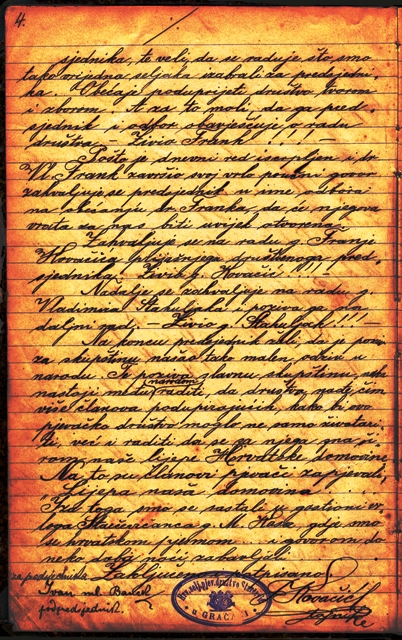 4.
sjednika, te veli da se raduje što smo
tako vrijedna seljaka izabrali za predsjedni-
ka. Obećaje poduprijeti društvo tvorom
i zborom. A za to moli, da ga pred-
sjednik i odbor obavješćuje o radu
društva. Živio Frank!!!! —
Pošto je dnevni red iscrpljen i dr.
Vl. Frank završio svoj vrlo poučni govor
zahvaljuje se predsjednik u ime odbora
na obećanju dr. Franka, da će njegova
vrata za nas biti uvijek otvorena.
Zahvaljuje se na radu g. Franji
Kovačiću prijašnjega društvenoga pred-
sjednika. Živio g. Kovačić!!! —
Nadalje se zahvaljuje na radu g.
Vladimira i poziva ga na
daljni rad. — Živio g. !!! —
Na koncu predsjednik veli da je povo-
za skupštinu naišao tako malen odziv u
narodu. Te poziva slavnu skupštinu neka
nastoji među narodom raditi, da društvo zadobije
više članova podupirajućih, kako bi ovo
pjevačko društvo moglo ne samo životari-
ti već i raditi da se za njega zna ši-
rom naše lijepe Hrvatske domovine.
Na to su članovi pjevači zapjevali
„Lijepa naša domovina
Iza toga smo se sastali u gostioni
g. M. gdje smo
se hrvatskom pjesmom i govorom do
neko doba noći zabavljali.
za predsjednika Zaključeno i potpisano
Ivan ml.
podpredsjednik.
Kovačić
društvo
u GRAČ